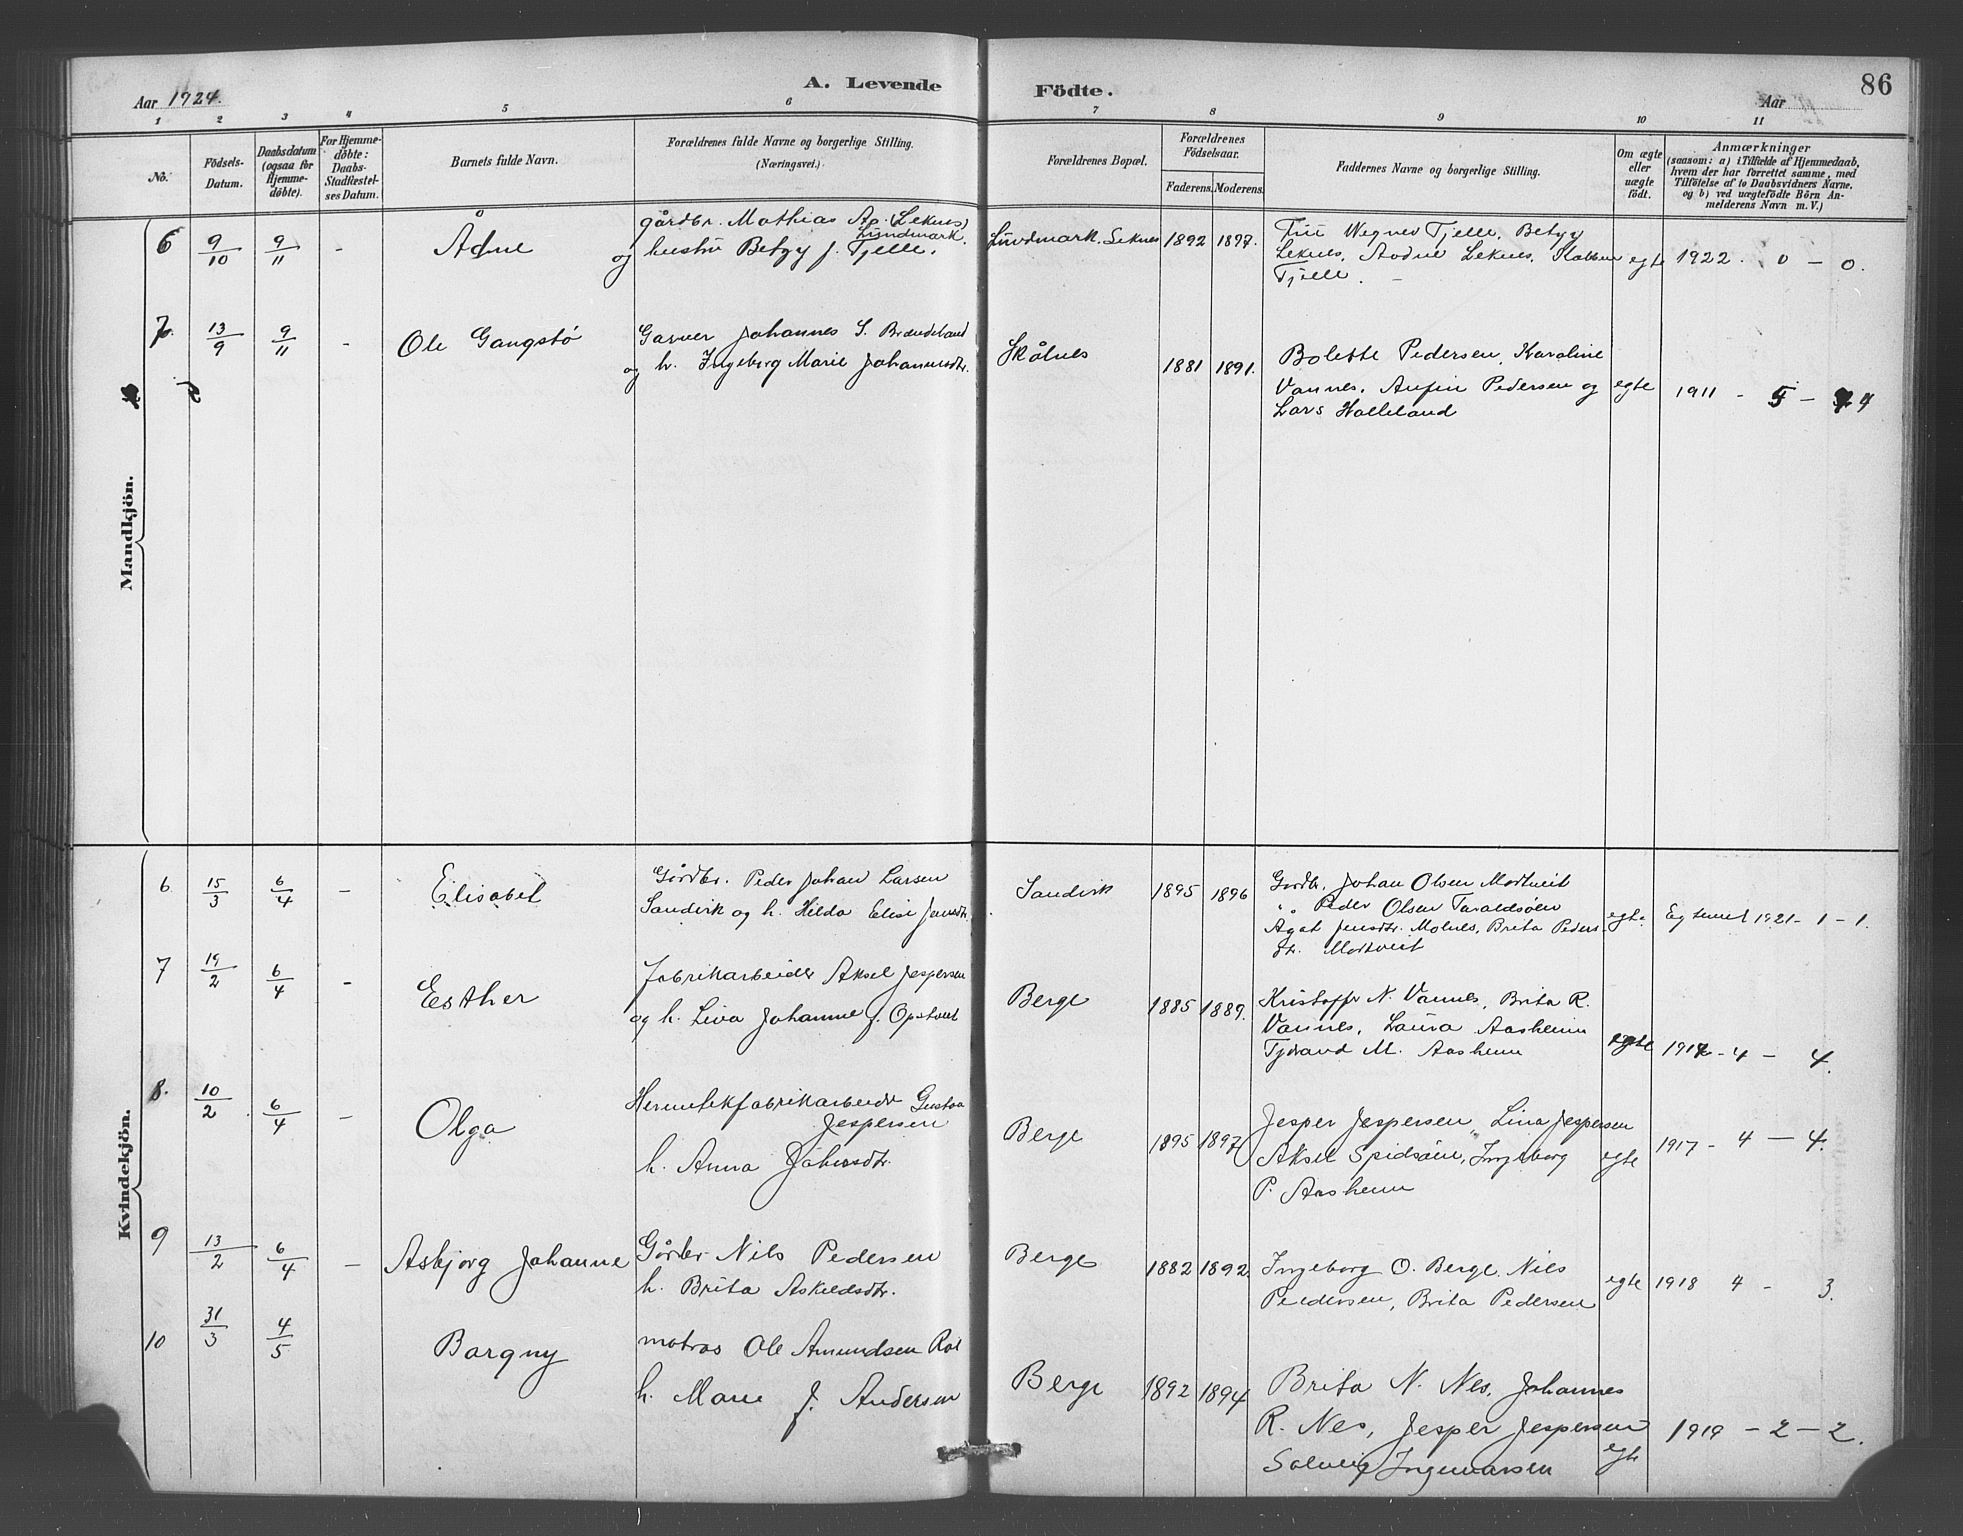 Aar 1924.
A. Levende Födte.
Aar
86
1 2 3 4 5 6 7 8 9 10 11
No.
Födsels-Datum.
Daabsdatum (ogsaa for Hjemme-döbte).
For Hjemme-döbte: Daabs-Stadfæstel-ses Datum.
Barnets fulde Navn.
Forældrenes fulde Navne og borgerlige Stilling.
(Næringsvei.)
Forældrenes Bopæl.
Forældrenes Födselsaar.
Faderens. Moderens.
Faddernes Navne og borgerlige Stilling.
Om ægte eller uægte födt.
Anmærkninger
(saasom: a) i Tilfælde af Hjemmedaab,
hvem der har forrettet samme, med
Tilföielse af to Daabsvidners Navne,
og b) ved uægtefödte Börn An-
melderens Navn m. V.)
Mandkjön.
6 9/10 9/11 - Ådne
gårdbr. Mathias Ap. (Leknes)
Lundmark.
og hustru Betzy f. Tjelle.
Lundmark. Leknes 1892 1897.
Wegner Tjelle. Betzy
Leknes. Leknes.
Tjelle. -
egte 1922. 0 - 0.
7 13/9 9/11 - Ole Gangstø
Garver Johannes S. Brændeland
og h. Ingeborg Marie Johannesdtr.
Skålnes 1881 1891.
Bolette Pedersen, Karoline
Vannes. Anfin Pedersen og
Lars Halleland
egte 1911 - 5 - 4
Kvindekjön.
6 15/3 6/4 - Elisabet
Gårdbr. Peder Johan Larsen
Sandvik og h. Hilda Elise Jensdtr.
Sandvik 1895 1896
Gardbr. Johan Olsen Mortveit
,, Peder Olsen Taraldsöien
Agat Jensdtr. Molnes, Brita Peders
dtr. Mortveit
egte. 1921 - 1 - 1.
7 19/2 6/4 - Esther
Fabrikarbeider Aksel Jespersen
og h. Lina Johanne f. Opstveit
Berge 1885 1889.
Kristoffer N. Vannes, Brita R.
Vannes, Laura Aasheim
M. Aasheim
egte - 4 - 4.
8. 10/2 6/4 - Olga
Hermetikfabrikarbeider Gustav
Jespersen
h. Anna
Berge 1895 1897
Jesper Jespersen, Lina Jespersen
Aksel Spidsöien, Ingeborg
P. Aasheim
egte 1917 - 4 - 4.
9 13/2 6/4 - Asbjorg Johanne
Gårdbr Nils Pedersen
h. Brita Askeldsdtr.
Berge 1882 1892.
Ingeborg O. Berge, Nils
Pedersen, Brita Pedersen
egte 1918 4 - 3.
10 31/3 4/5 Borgny
matros Ole Amundsen
h. Marie f. Andersen
Berge 1892 1894
Brita N. Nes, Johannes
R. Nes, Jesper Jespersen
Solveig Ingemarsen
egte 1919 - 2 - 2.